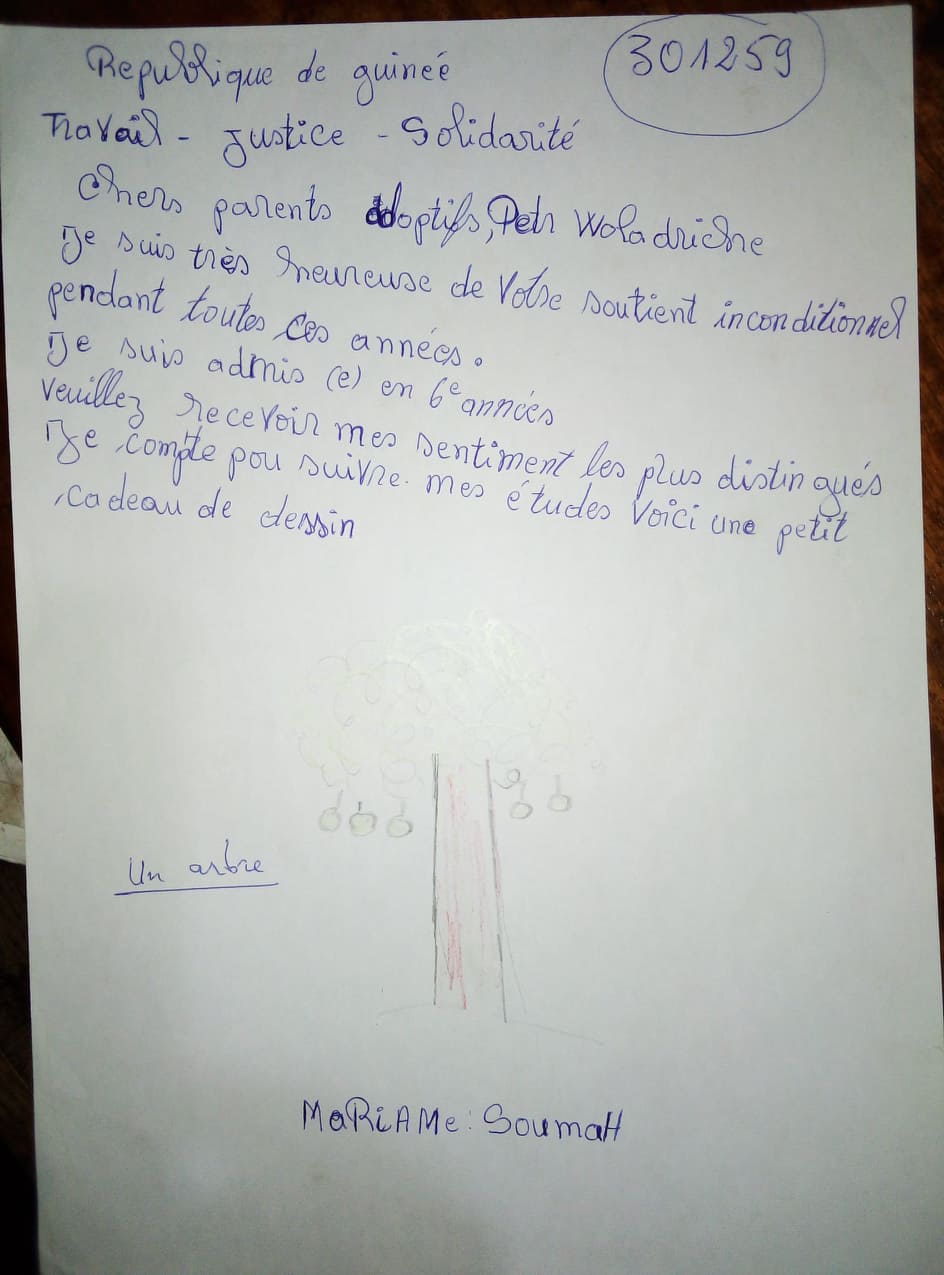 Republique de guineé
301259
Travail - justice - Solidarité
Chers parents adoptifs, Petr Woladriche
Je suis très heureuse de Votse soutient inconditionnel
pendant toutes ces années.
Je suis admis (e) en 6e années
Veuillez recevoir mes sentiment les plus distingués
Je compte pou suivre mes études Voici une petit
cadeau de dessin
Un arbre
MaRiAMe: SoumaH